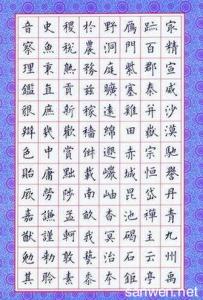 冣精宣威沙漠馳譽丹青九州禹
跡百郡秦并嶽宗恒岱禪主云亭
雁門紫塞雞田赤城昆池碣石鉅
野洞庭曠遠綿邈巖岫杳冥治本
於農務茲稼穡俶載南畝我藝黍
稷稅熟貢新勸賞黜陟孟軻敦素
史魚秉直庶幾中庸勞謙謹敕聆
音察理鑑貌辯色貽厥嘉猷勉其
sanwen.net